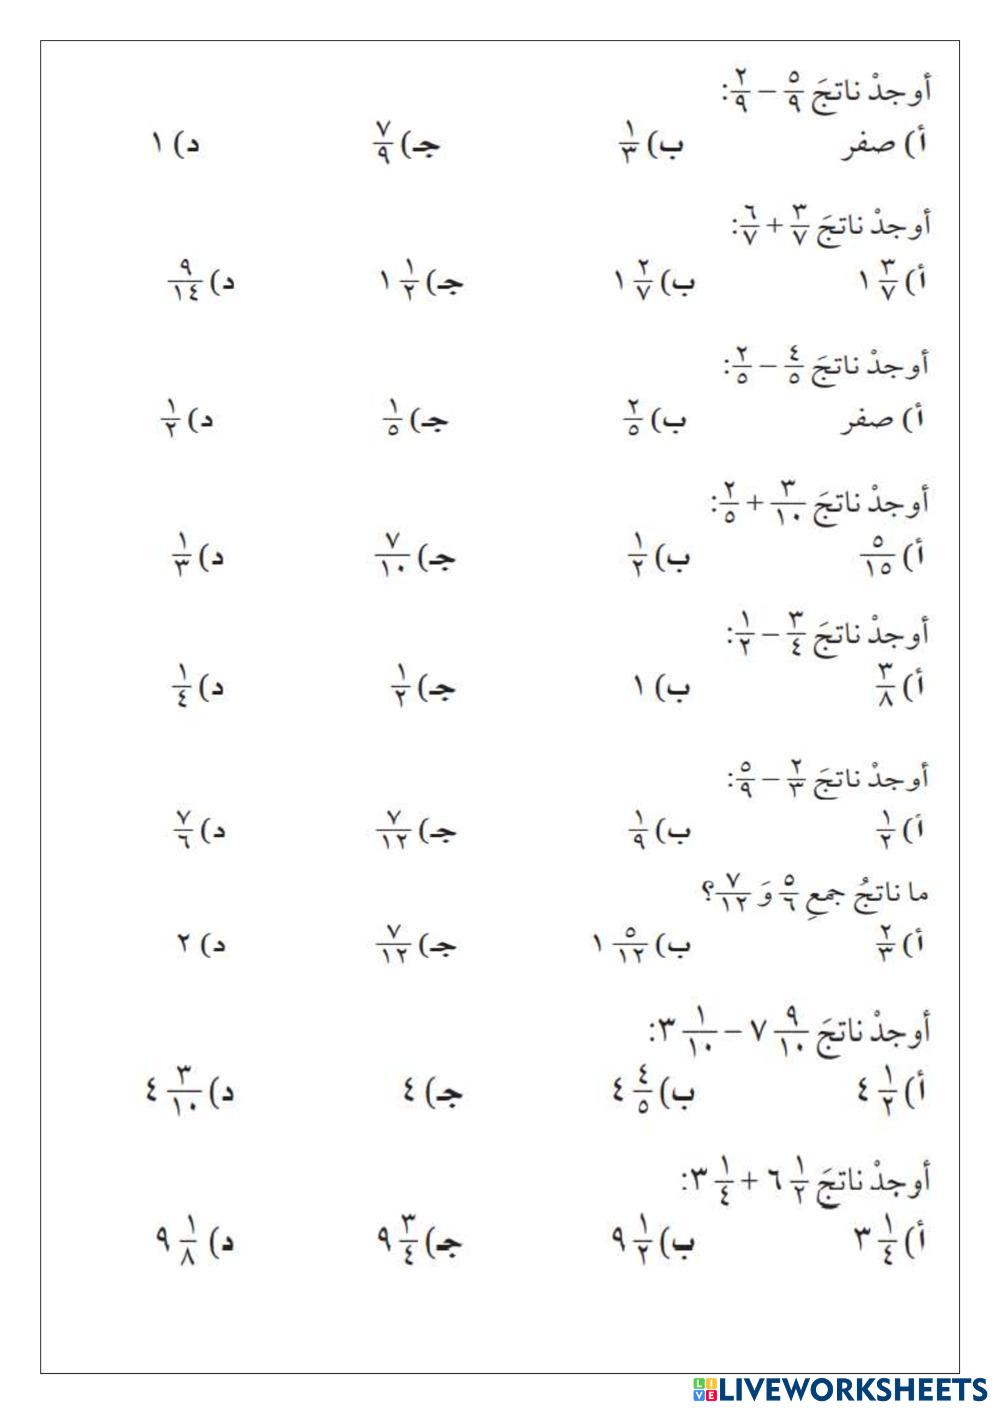 أوجدْ ناتجَ ٥/٩ − ٢/٩:
أ) صفر ب) ١/٣ جـ) ٧/٩ د) ١
أوجدْ ناتجَ ٣/٧ + ٦/٧:
أ) ١ ٣/٧ ب) ١ ٢/٧ جـ) ١ ١/٢ د) ٩/١٤
أوجدْ ناتجَ ٤/٥ − ٢/٥:
أ) صفر ب) ٢/٥ جـ) ١/٥ د) ١/٢
أوجدْ ناتجَ ٣/١٠ + ٢/٥:
أ) ٥/١٥ ب) ١/٢ جـ) ٧/١٠ د) ١/٣
أوجدْ ناتجَ ٣/٤ − ١/٢:
أ) ٣/٨ ب) ١ جـ) ١/٢ د) ١/٤
أوجدْ ناتجَ ٢/٣ − ٥/٩:
أ) ١/٢ ب) ١/٩ جـ) ٧/١٢ د) ٧/٦
ما ناتجُ جمعِ ٥/٦ وَ ٧/١٢؟
أ) ٢/٣ ب) ١ ٥/١٢ جـ) ٧/١٢ د) ٢
أوجدْ ناتجَ ٧ ٩/١٠ − ٣ ١/١٠:
أ) ٤ ١/٢ ب) ٤ ٤/٥ جـ) ٤ د) ٤ ٣/١٠
أوجدْ ناتجَ ٦ ١/٢ + ٣ ١/٤:
أ) ٣ ١/٤ ب) ٩ ١/٢ جـ) ٩ ٣/٤ د) ٩ ١/٨
LIVE LIVEWORKSHEETS